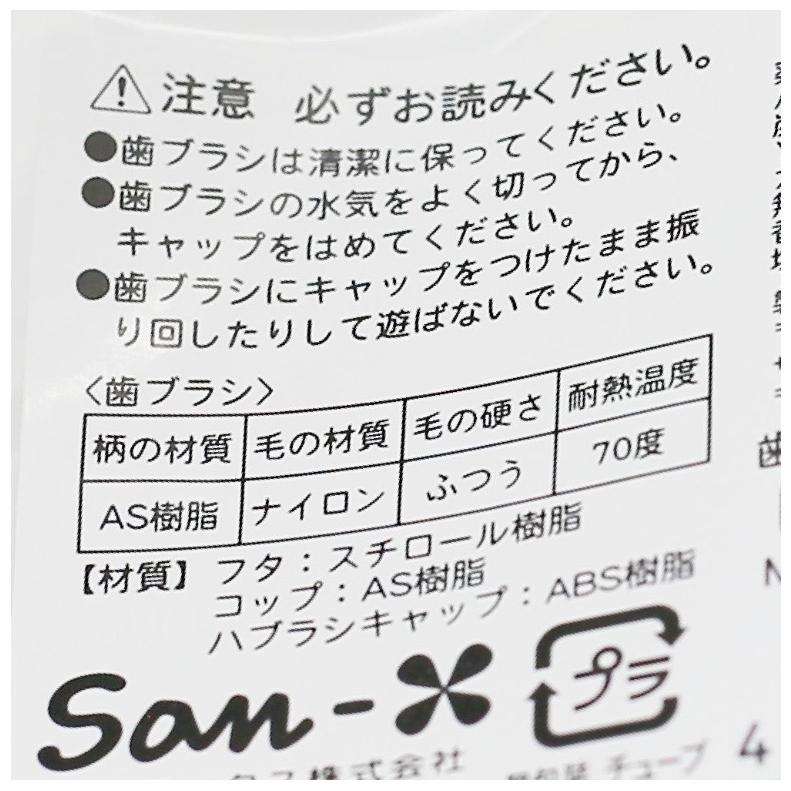 注意 必ずお読みください。
●歯ブラシは清潔に保ってください。
●歯ブラシの水気をよく切ってから、
キャップをはめてください。
●歯ブラシにキャップをつけたまま振
り回したりして遊ばないでください。
〈歯ブラシ〉
柄の材質 毛の材質 毛の硬さ 耐熱温度
AS樹脂 ナイロン ふつう 70度
【材質】 フタ：スチロール樹脂
コップ：AS樹脂
ハブラシキャップ：ABS樹脂
San-X
プラ
株式会社
チューブ
4